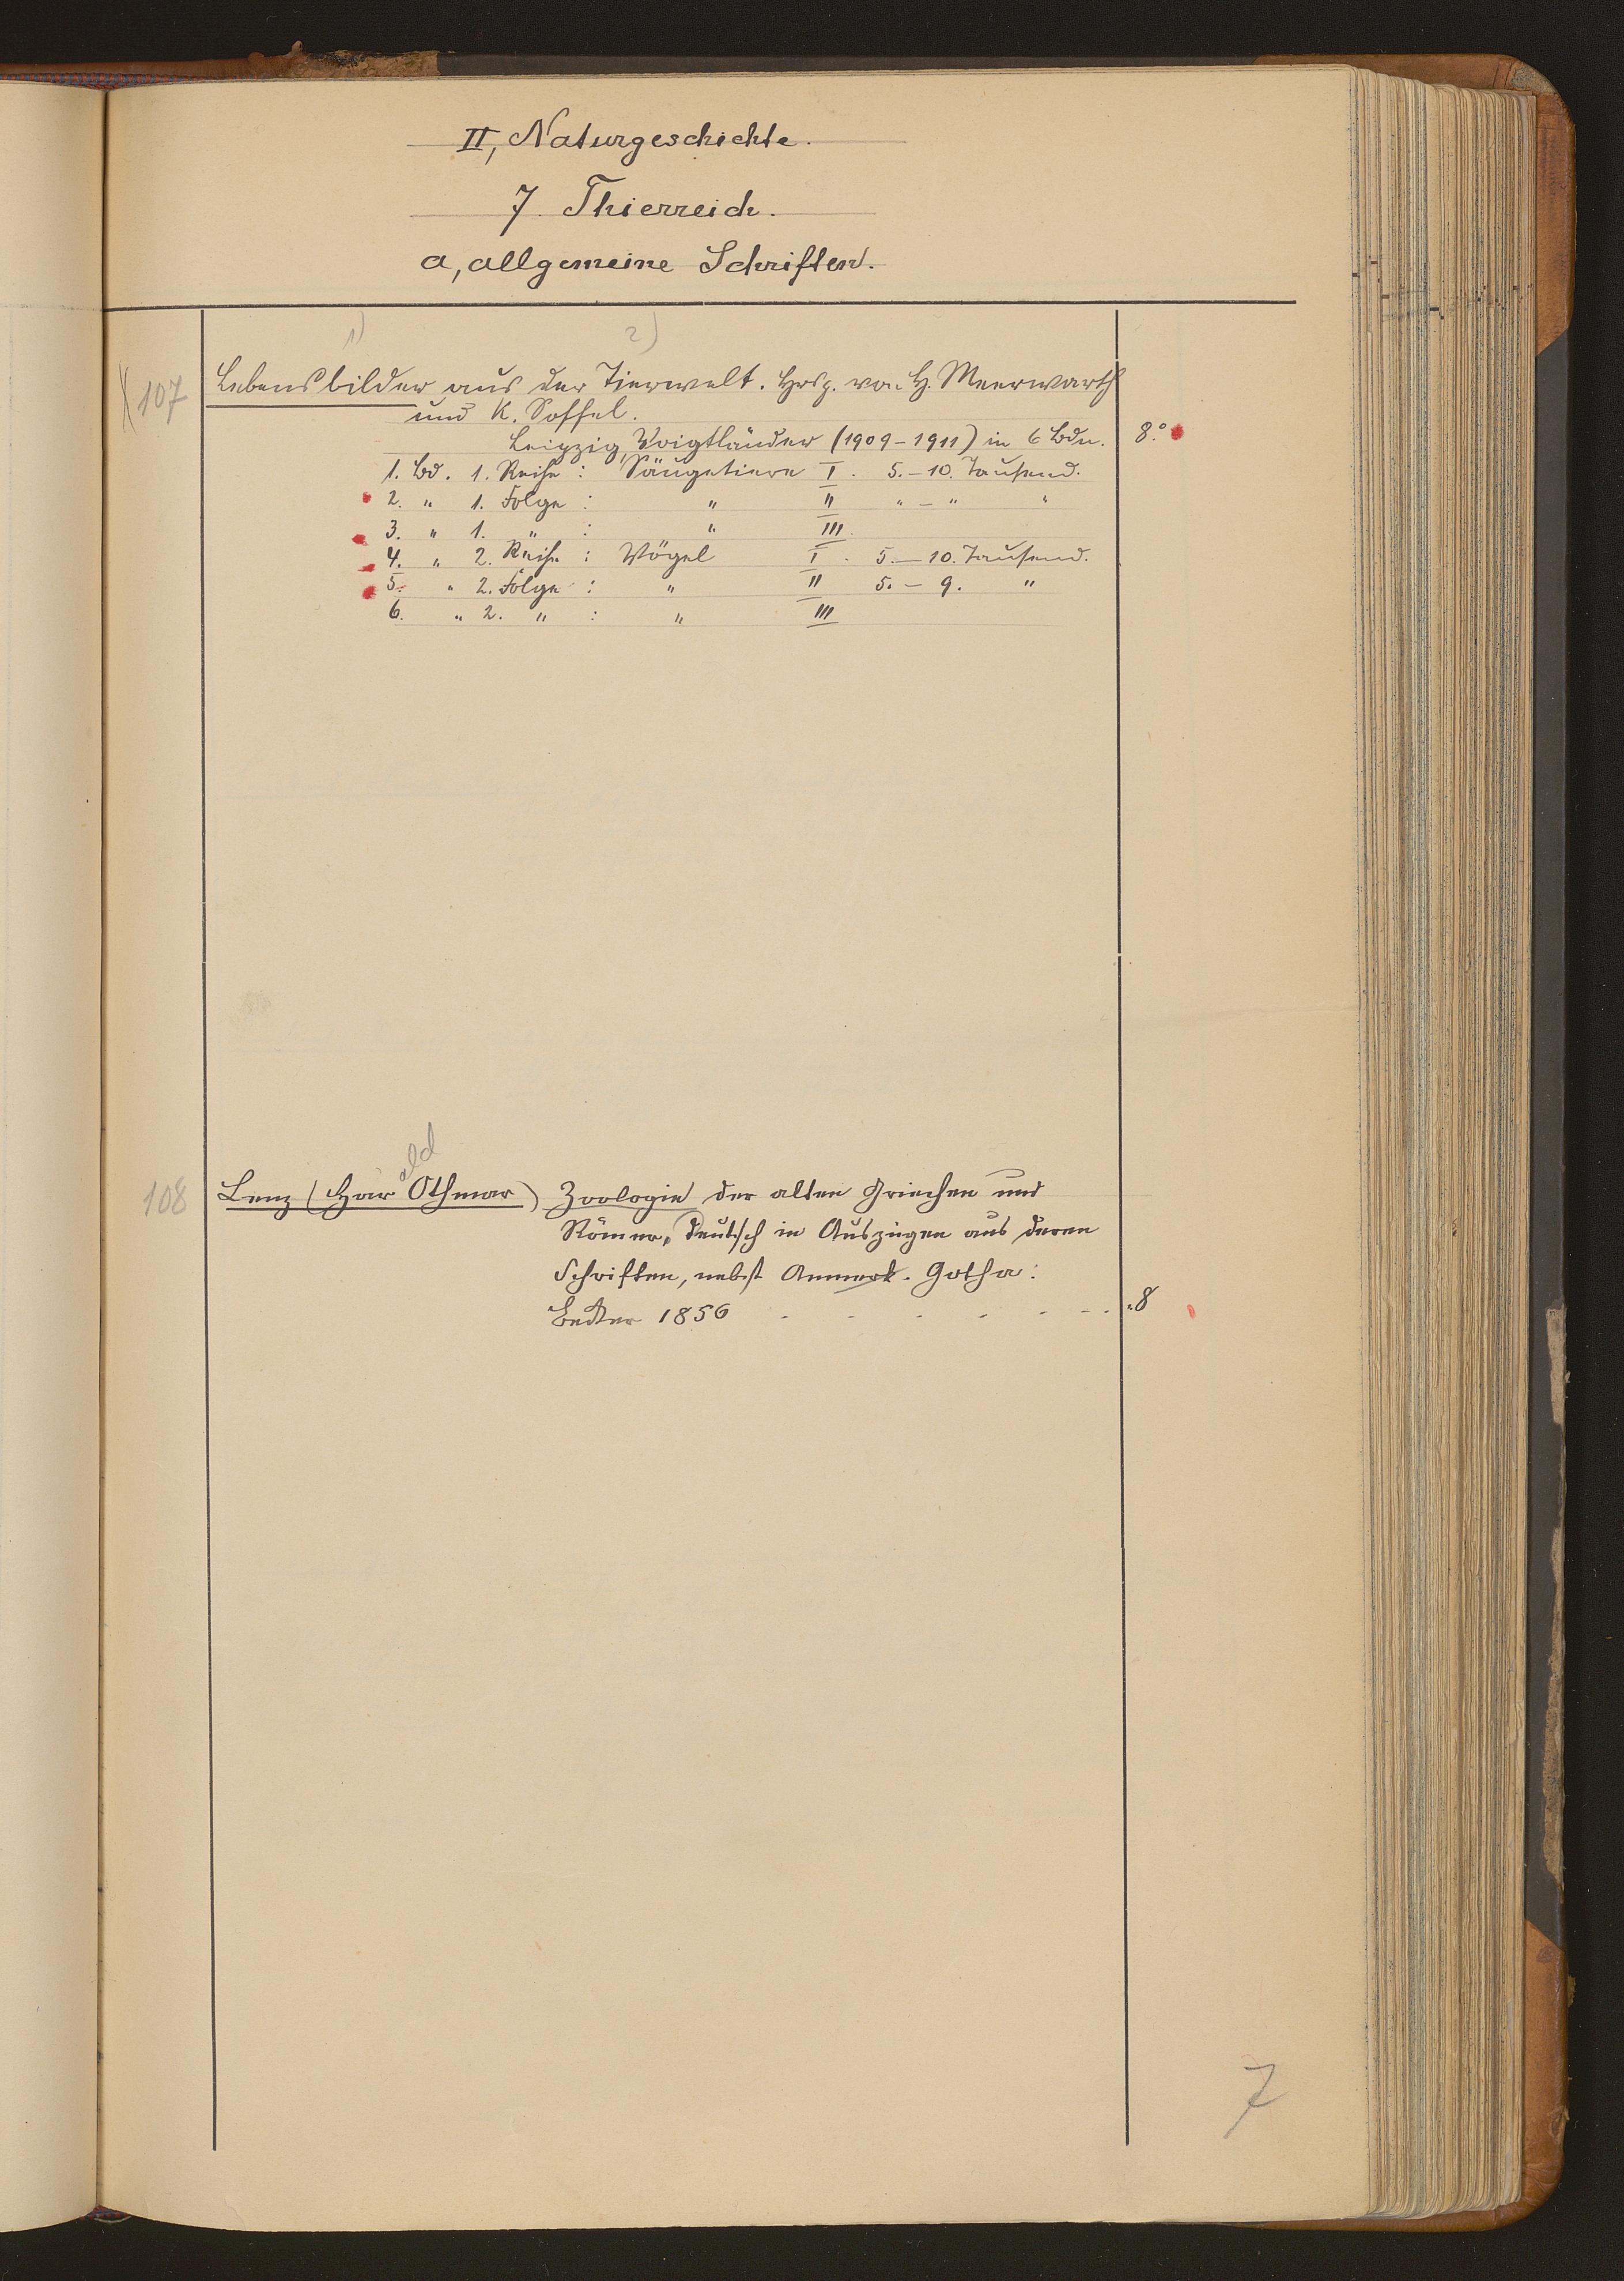 II, Naturgeschichte.
7. Thierreich.
a, allgemeine Schriften.
1) 2)
X 107 Lebensbilder aus der Tierwelt. Hrsg. von H. Meerwarth
und K. Soffel.
Leipzig, Voigtländer (1909-1911) in 6 Bdn. 8.°
1. Bd. 1. Reihe: Säugetiere I. 5.-10. Tausend.
2. " 1. Folge: " II " - " "
3. " 1. " : " III.
4. " 2. Reihe: Vögel I. 5.-10. Tausend.
5. " 2. Folge: " II 5.-9. "
6. " 2. " : " III
ald
108 Lenz (Har Othmar) Zoologie der alten Griechen und
Römer, deutsch in Auszügen aus deren
Schriften, nebst Anmerk. Gotha:
Becker 1856 - - - - - - . 8
7